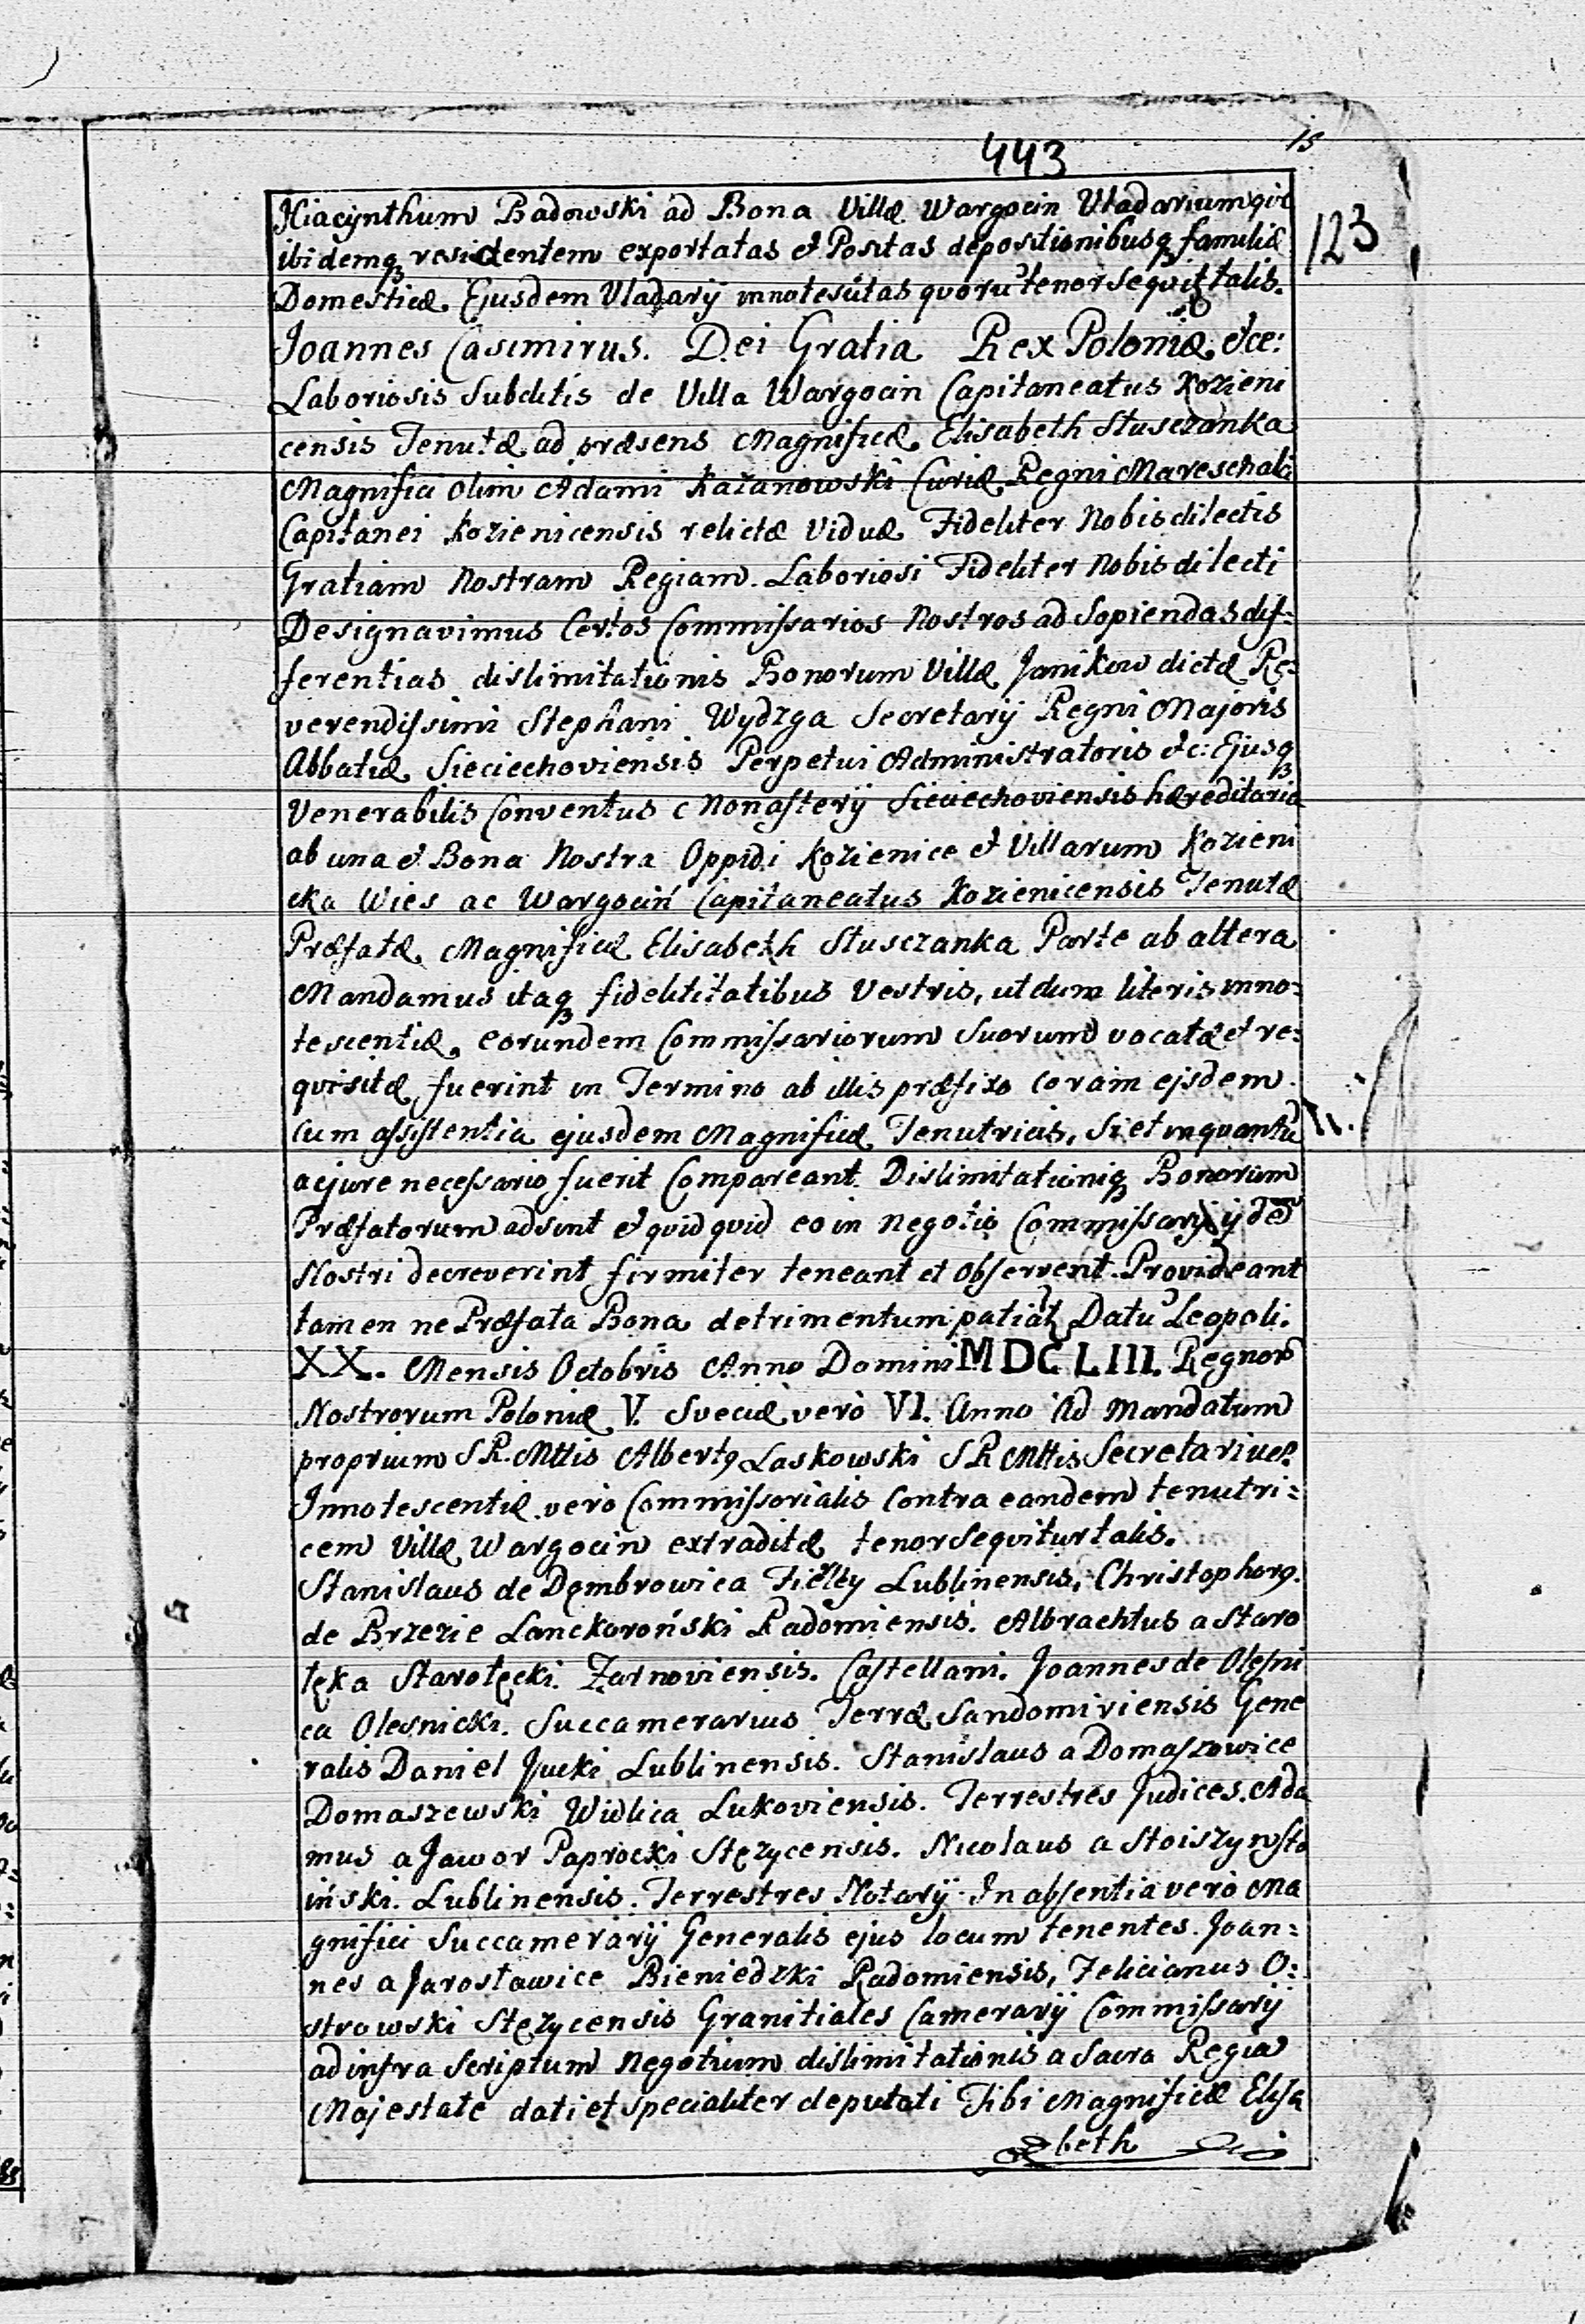 443
15
123
Hiacynthum Badowski ad Bona Villæ Wargocin Vładariumqve
ibidemq residentem exportatas et Positas depositionibusq familiæ
Domesticæ Ejusdem Vladarij innotesutas quorũ tenor Sequit talis.
Joannes Casimirus. Dei Gratia Rex Poloniæ etce:
Laboriosis Subditis de Villa Wargocin Capitaneatus Kozieni
censis Tenutæ ad præsens Magnificæ Elisabeth Słusczanka
Magnifici olim Adami Kazanowski Curiæ Regni Mareschalci
Capitanei Kozienicensis relictæ Viduæ Fideliter Nobis dilectis
Gratiam Nostram Regiam. Laboriosi Fideliter Nobis dilecti
Designavimus Certos Commissarios Nostros ad Sopiendas dif=
ferentias dislimitationis Bonorum Villæ Janikow dictæ Re=
verendissimi Stephani Wydzga Secretarij Regni Majoris
Abbatiæ Sieciechoviensis Perpetui Administratoris etc: Ejusq
Venerabilis Conventus Monasterij Sieciechoviensis hæreditaria
ab una et Bona Nostra Oppidi Kozienice et Villarum Kozieni
cka Wies ac Wargocin Capitaneatus Kozienicensis Tenutæ
Præfatæ Magnificæ Elisabeth Słusczanka Parte ab altera
Mandamus itaq fidelititatibus Vestris, ut dum literis inno=
tescentiæ eorundem Commissariorum Suorum vocatæ et re=
quisitæ fuerint in Termino ab illis præfixo coram ejsdem.
Cum assistentia ejusdem Magnificæ Tenutricis, Si et inquantũ
a jure necessario fuerit Compareant. Dislimitationiq Bonorum
Præfatorum adsint et quidquid eo in negotio Commissarij ijdẽ
Nostri decreverint firmiter teneant et observent. Provideant
tamen ne Præfata Bona detrimentum patiãt Datũ Leopoli.
XX. Mensis Octobris Anno Domini MDCLIII. Regnorũ
Nostrorum Poloniæ V. Sveciæ verò VI. Anno Ad Mandatum
proprium S R. Mttis Albertq Laskowski S R Mttis Secretarius.
Innotescentiæ verò Commissorialis Contra eandem tenutri=
cem Villæ Wargocin extraditæ tenor Sequitur talis.
Stanislaus de Dembrowica Firley Lublinensis, Christophorq.
de Brzezie Lanckoroński Radomiensis. Albrachtus a Staro
łęka Starołęcki. Zarnoviensis. Castellani. Joannes de Olesni
ca Olesnicki. Succamerarius Terræ Sandomiriensis Gene
ralis Daniel Jucki Lublinensis. Stanislaus a Domaszowice
Domaszewski Widlica Lukoviensis. Terrestres Judices. Ada
mus a Jawor Paprocki Stęzycensis. Nicolaus a Stoiszyn Sto
iński. Lublinensis. Terrestres Notarij. In absentia verò Ma
gnifici Succamerarij Generalis ejus locum tenentes. Joan=
nes a Jarosławice Bieniedzki Radomiensis, Felicianus O=
strowski Stęzycensis Granitiales Camerarij Commissarij
ad infra Scriptum negotium dislimitationis a Sacra Regia
Majestate dati et specialiter deputati Tibi Magnificæ Elisa
beth